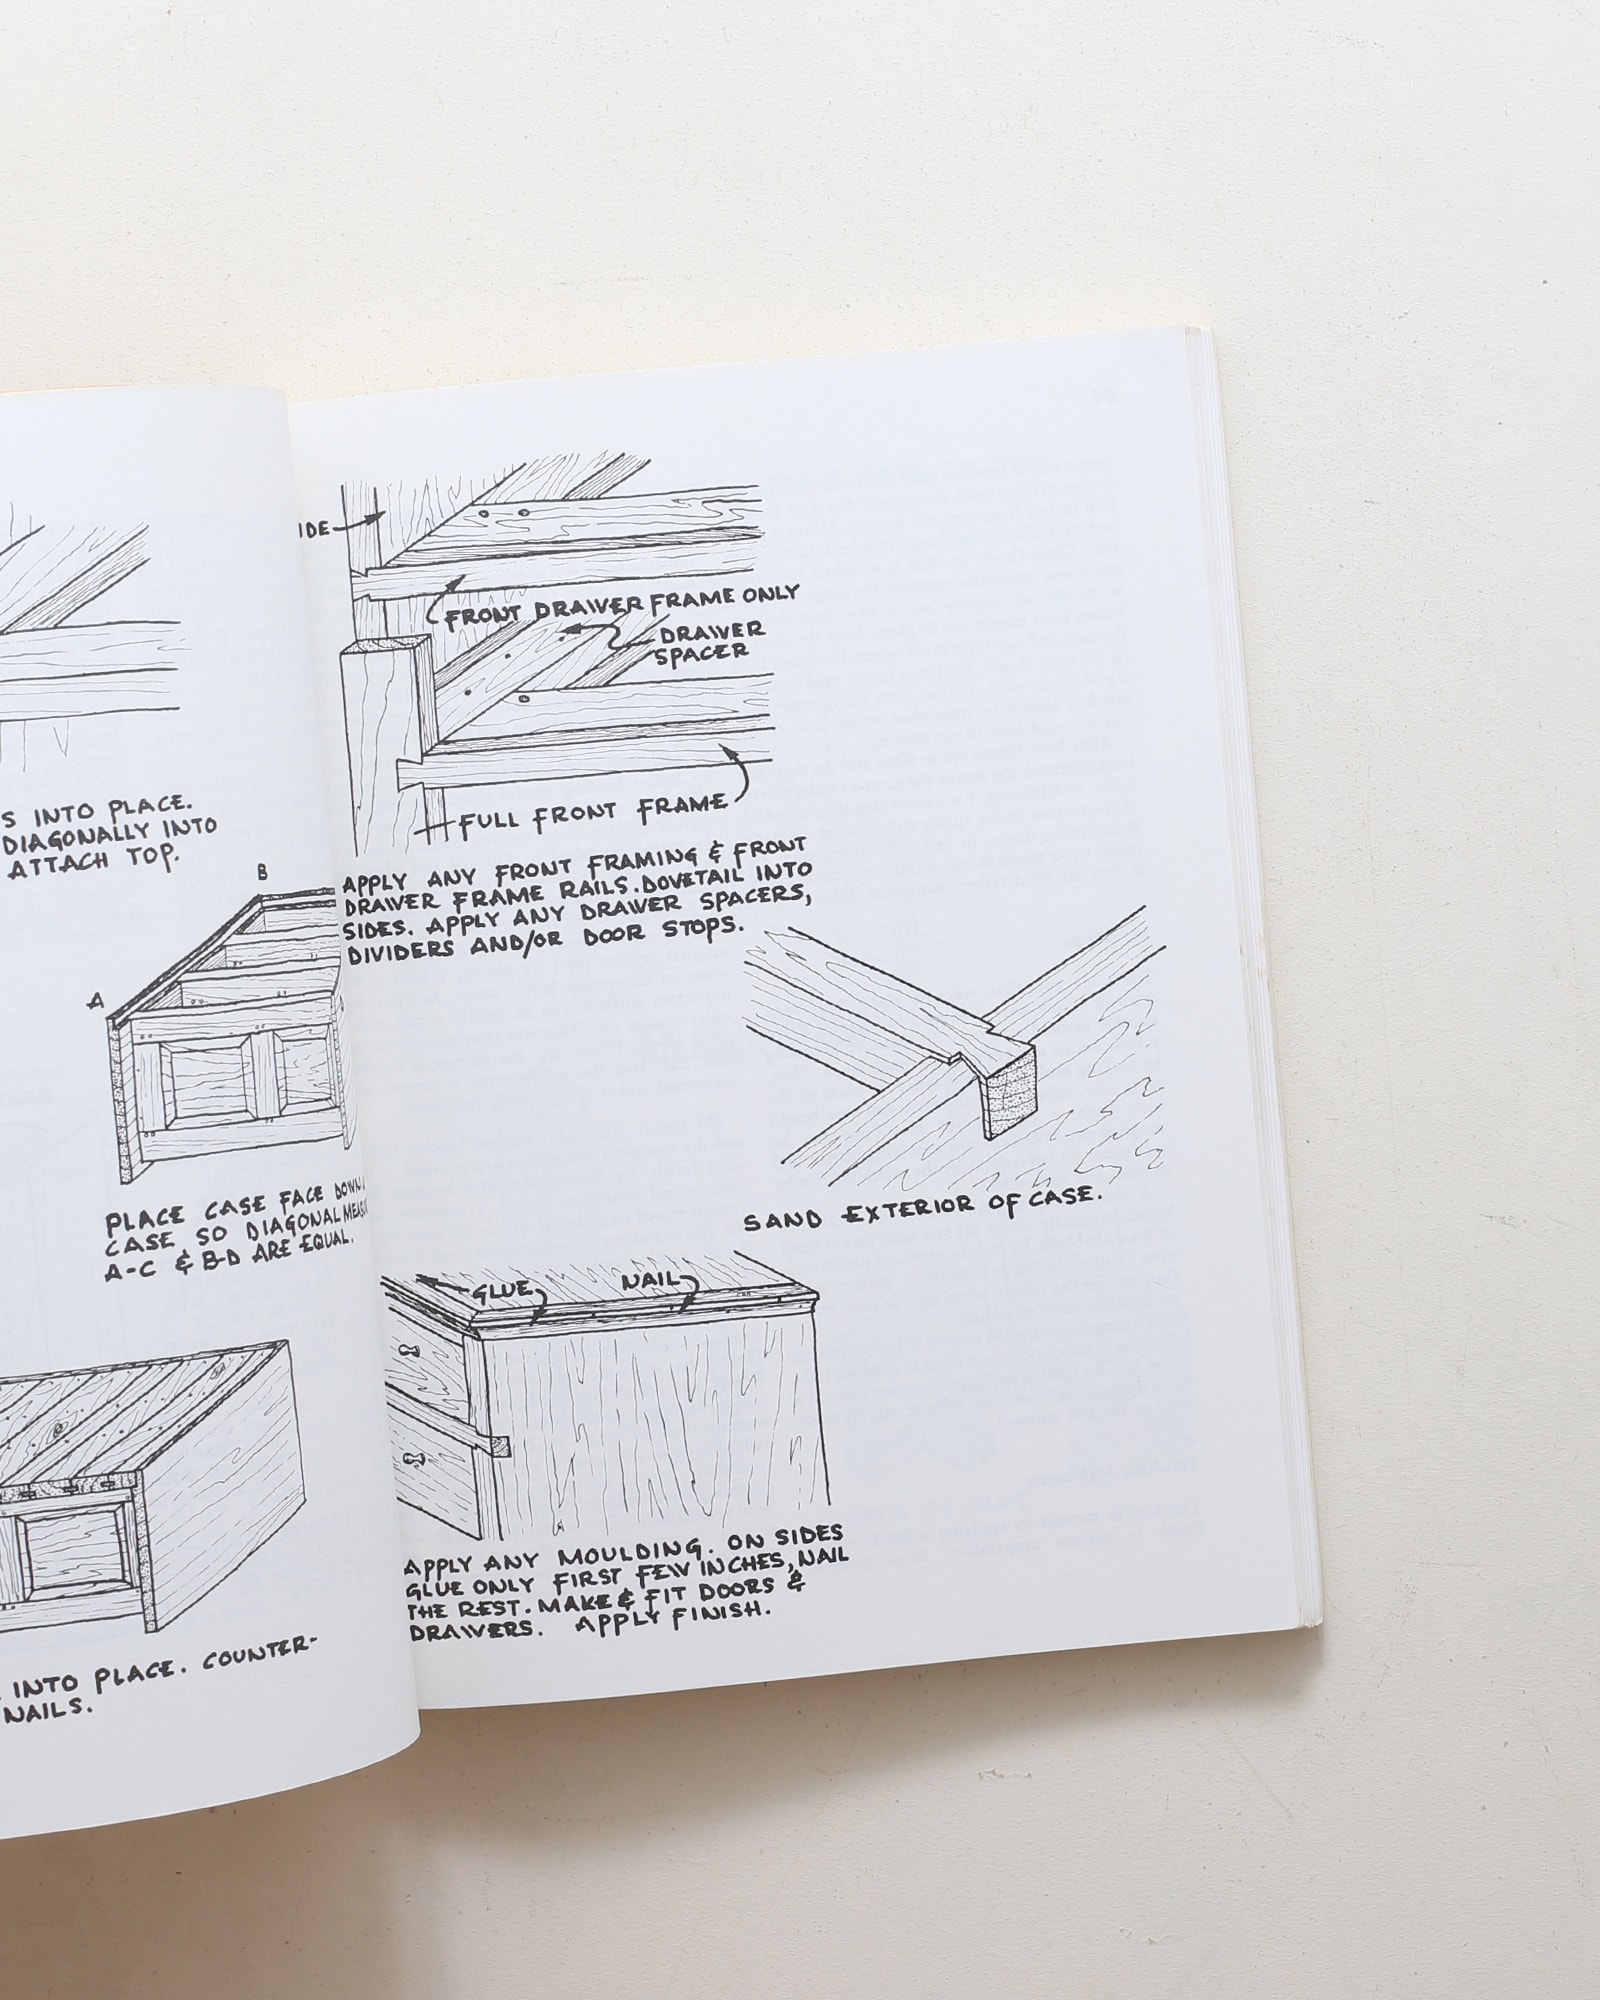 S INTO PLACE.
DIAGONALLY INTO
ATTACH TOP.
B
A
PLACE CASE FACE DOWN
CASE SO DIAGONAL
A-C & B-D ARE EQUAL.
INTO PLACE. COUNTER-
NAILS.
IDE
FRONT DRAWER FRAME ONLY
DRAWER
SPACER
FULL FRONT FRAME
APPLY ANY FRONT FRAMING & FRONT
DRAWER FRAME RAILS. DOVETAIL INTO
SIDES. APPLY ANY DRAWER SPACERS,
DIVIDERS AND/OR DOOR STOPS.
SAND EXTERIOR OF CASE.
GLUE
NAIL
APPLY ANY MOULDING. ON SIDES
GLUE ONLY FIRST FEW INCHES, NAIL
THE REST. MAKE & FIT DOORS &
DRAWERS. APPLY FINISH.